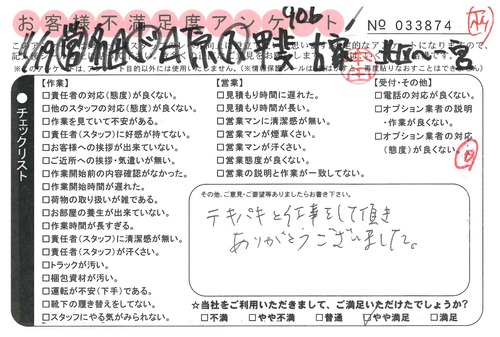 お客様不満足度アンケート
406
No 033874
【作業】
□責任者の対応(態度)が良くない。
□他のスタッフの対応(態度)が良くない。
□作業を見ていて不安がある。
□責任者(スタッフ)に好感が持てない。
□お客様への挨拶が出来ていない。
□ご近所への挨拶・気遣いが無い。
□作業開始前の内容確認がなかった。
□作業開始時間が遅れた。
□荷物の取り扱いが雑である。
□お部屋の養生が出来ていない。
□作業時間が長すぎる。
□責任者(スタッフ)に清潔感が無い。
□責任者(スタッフ)が汗くさい。
□トラックが汚い。
□梱包資材が汚い。
□運転が不安(下手)である。
□靴下の履き替えをしてない。
□スタッフにやる気がみられない。
【営業】
□見積もり時間に遅れた。
□見積もり時間が長い。
□営業マンに清潔感が無い。
□営業マンが煙草くさい。
□営業マンが汗くさい。
□営業態度が良くない。
□営業の説明と作業が一致してない。
【受付・その他】
□電話の対応が良くない。
□オプション業者の説明
・作業が良くない。
□オプション業者の対応
(態度)が良くない。
チェックリスト
その他、ご意見・ご要望等ありましたらお書き下さい。
テキパキと仕事をして頂き
ありがとうございました。
☆当社をご利用いただきまして、ご満足いただけたでしょうか?
□不満 □やや不満 □普通 □やや満足 □満足